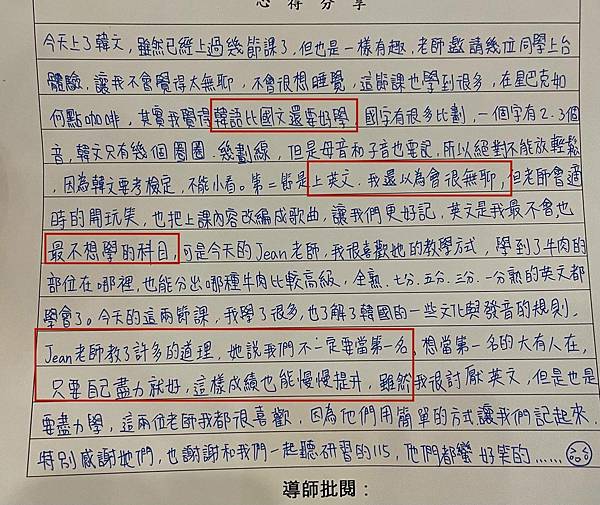 心得分享
今天上了韓文，雖然已經上過幾節課了，但也是一樣有趣，老師邀請幾位同學上台
體驗，讓我不會覺得太無聊，不會很想睡覺，這節課也學到很多，在星巴克如
何點咖啡，其實我覺得韓語比國文還要好學，國字有很多比劃，一個字有2.3個
音，韓文只有幾個圈圈.幾劃線，但是母音和子音也要記，所以絕對不能放輕鬆
，因為韓文要考檢定，不能小看。第二節是上英文.我還以為會很無聊，但老師會適
時的開玩笑，也把上課內容改編成歌曲，讓我們更好記，英文是我最不會,也
最不想學的科目，可是今天的Jean老師，我很喜歡她的教學方式，學到了牛肉的
部位在哪裡，也能分出哪種牛肉比較高級，全熟.七分.五分.三分.一分熟的英文都
學會了。今天的這兩節課，我學了很多，也了解了韓國的一些文化與發音的規則。
Jean老師教了許多的道理，她說我們不一定要當第一名。想當第一名的大有人在，
只要自己盡力就好，這樣成績也能慢慢提升，雖然我很討厭英文，但是也是
要盡力學，這兩位老師我都很喜歡，因為他們用簡單的方式讓我們記起來.
特別感謝她們，也謝謝和我們一起聽研習的115，他們都蠻好笑的......
導師批閱：